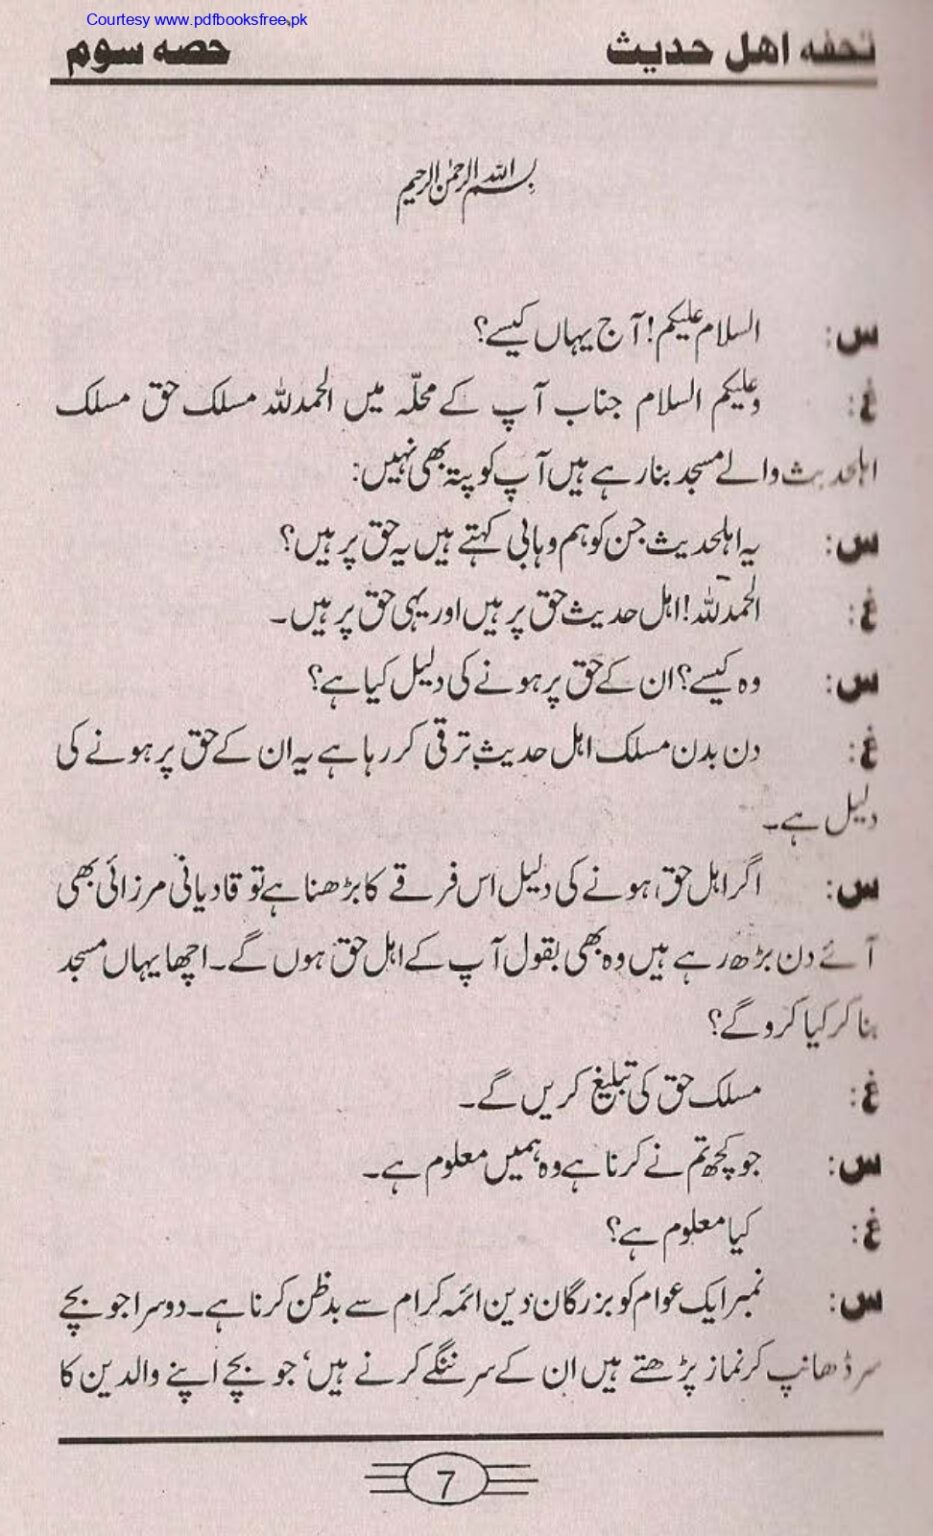 Courtesy www.pdfbooksfree.pk
تحفه اهل حدیث حصه سوم
بسم اللہ الرحمٰن الرحیم
س: السلام علیکم! آج یہاں کیسے؟
غ: وعلیکم السلام جناب آپ کے محلّہ میں الحمدللہ مسلک حق مسلک
اہلحدیث والے مسجد بنا رہے ہیں آپ کو پتہ بھی نہیں:
س: یہ اہلحدیث جن کو ہم وہابی کہتے ہیں یہ حق پر ہیں؟
غ: الحمدللہ! اہل حدیث حق پر ہیں اور یہی حق پر ہیں۔
س: وہ کیسے؟ ان کے حق پر ہونے کی دلیل کیا ہے؟
غ: دن بدن مسلک اہل حدیث ترقی کر رہا ہے یہ ان کے حق پر ہونے کی
دلیل ہے۔
س: اگر اہل حق ہونے کی دلیل اس فرقے کا بڑھنا ہے تو قادیانی مرزائی بھی
آئے دن بڑھ رہے ہیں وہ بھی بقول آپ کے اہل حق ہوں گے۔ اچھا یہاں مسجد
بنا کر کیا کرو گے؟
غ: مسلک حق کی تبلیغ کریں گے۔
س: جو کچھ تم نے کرنا ہے وہ ہمیں معلوم ہے۔
غ: کیا معلوم ہے؟
س: نمبر ایک عوام کو بزرگان دین ائمہ کرام سے بدظن کرنا ہے۔ دوسرا جو بچے
سر ڈھانپ کر نماز پڑھتے ہیں ان کے سر ننگے کرنے ہیں‘ جو بچے اپنے والدین کا
7